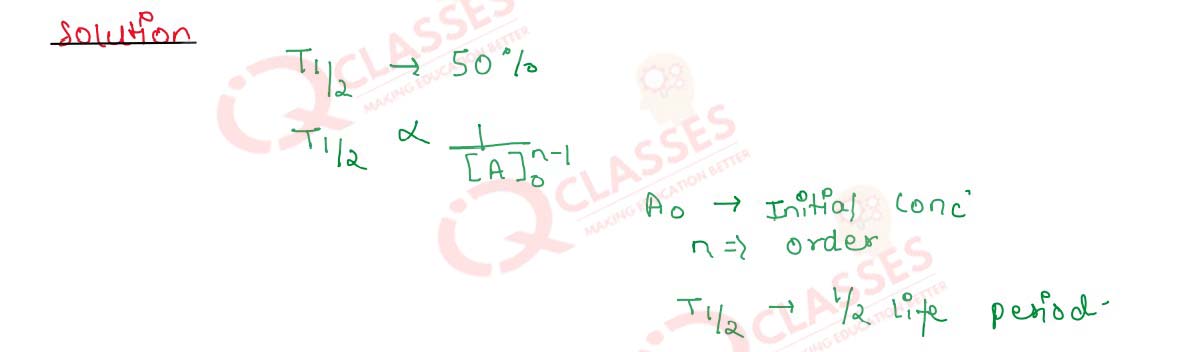 Solution
T1/2 → 50%
T1/2 ∝ 1/[A]₀ⁿ⁻¹
A₀ → Initial conc'
n => order
T1/2 → 1/2 life period-
IQ CLASSES
MAKING EDUCATION BETTER
IQ CLASSES
MAKING EDUCATION BETTER
IQ CLASSES
MAKING EDUCATION BETTER